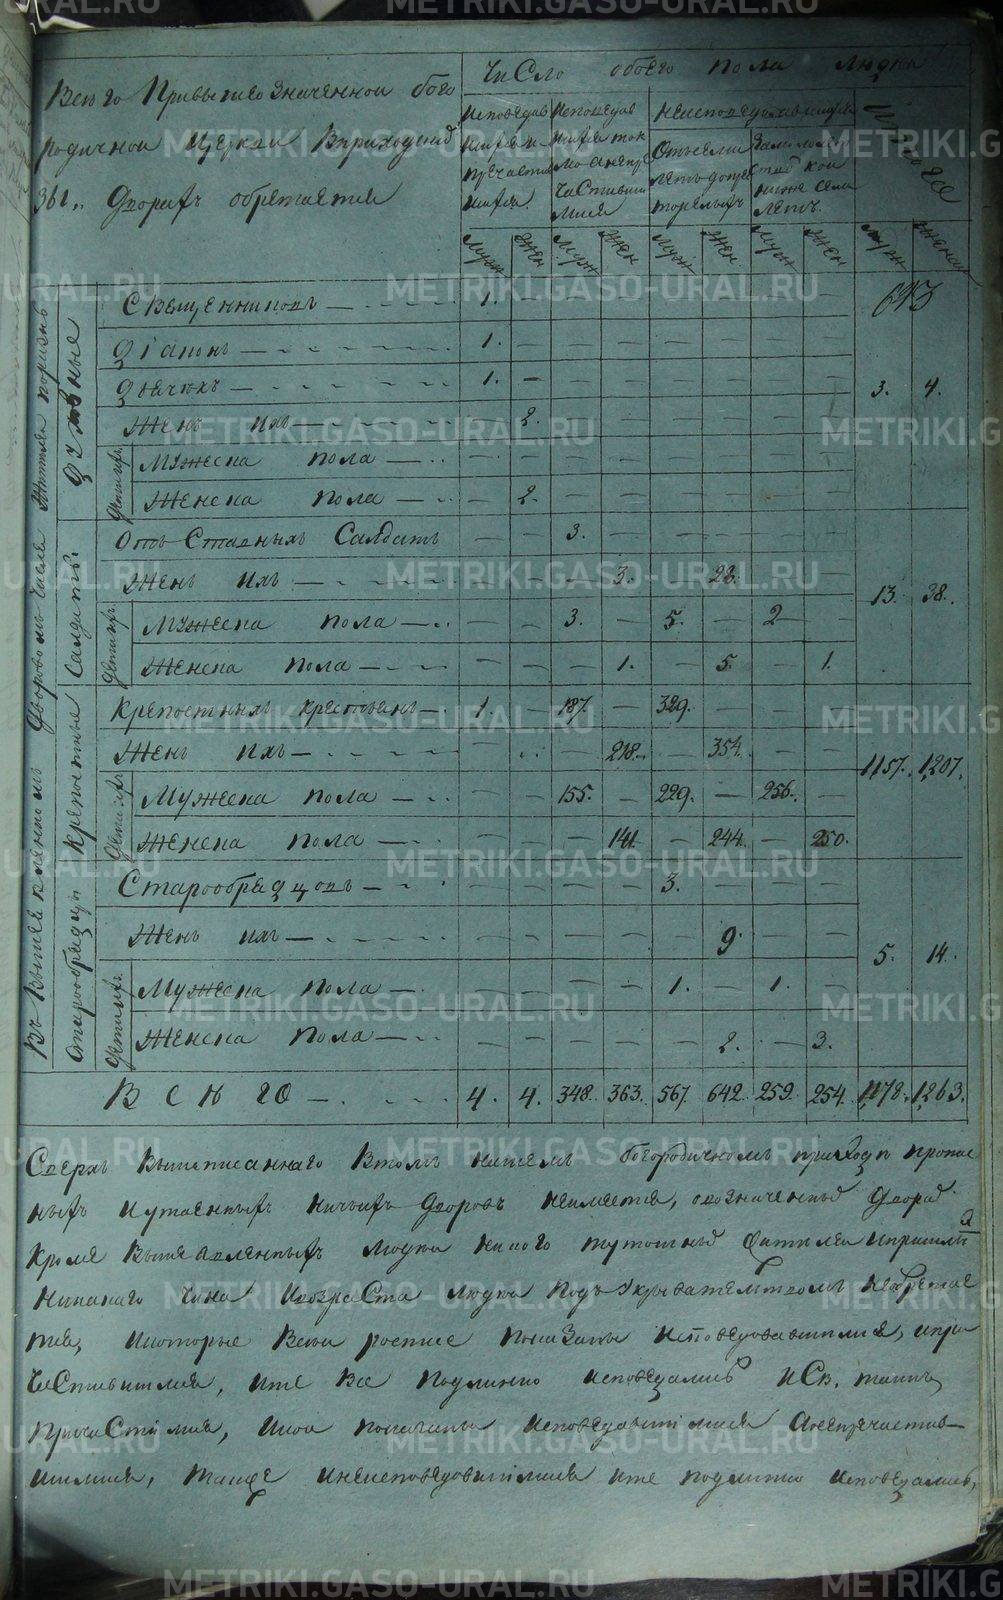 Всего Привышеозначенной бого
родичной Церкви Вприходскихъ
361„ Дворахъ обретается
Число обоего пола людей
Исповедав шихся и причастив шихся.
Исповедав шихся ток мо анепри частивши мися
Неисповедававшихся
Итого
Муж Жен Муж Жен Муж Жен Муж Жен Муж Женск
643
Въ вышеявленномъ дворовомъ числе
Духовные
Священниковъ — 1. — — — — — — —
Діаконъ — 1. — — — — — — —
Дьячокъ — 1. — — — — — — —
3. 4.
Женъ ихъ — — 2. — — — — — —
Дети ихъ
Мужеска пола — — — — — — — — —
Женска пола — — 2. — — — — — —
Салдаты
Отъ Ставныхъ Салдатъ — — 3. — — — — —
Женъ ихъ — — — — 3. — 28. — —
13. 38.
Дети ихъ
Мужеска пола — — — 3. — 5. — 2 —
Женска пола — — — — 1. — 5. — 1.
Крепостные
Крепостныхъ крестьянъ — 1. — 187. — 329. — — —
Женъ ихъ — — — — 218. — 354. — —
1157. 1207.
Дети ихъ
Мужеска пола — — — 155. — 229. — 256. —
Женска пола — — — — 141. — 244. — 250.
Старообрядцы
Старообрядцовъ — — — — — 3. — — —
Женъ ихъ — — — — — — 9. — —
5. 14.
Дети ихъ
Мужеска пола — — — — — 1. — 1. —
Женска пола — — — — — — 2. — 3.
Всего — 4. 4. 348. 363. 567. 642. 259. 254. 1178. 1263.
Сверхъ вышеписаннаго Втомъ нашемъ богородичномъ приходе пропис
ныхъ иутаенныхъ ничьихъ дворовъ неимеется, овозначенныхъ дворах
кроме вышеявленныхъ людей никого тутошныхъ жителей ипришлы
никакаго чина ивозраста людей подъ укрывательствомъ необретае
тся, икоторые Всей росписе показаны исповедовавшимися, ипри
частившимися, ите все подлинно исповедались исв. таинъ
причастились, икои показаны исповедавшимися анепричастив
шимися, также инеисповедовавшимися ите подлинно исповедались,
METRIKI.GASO-URAL.RU